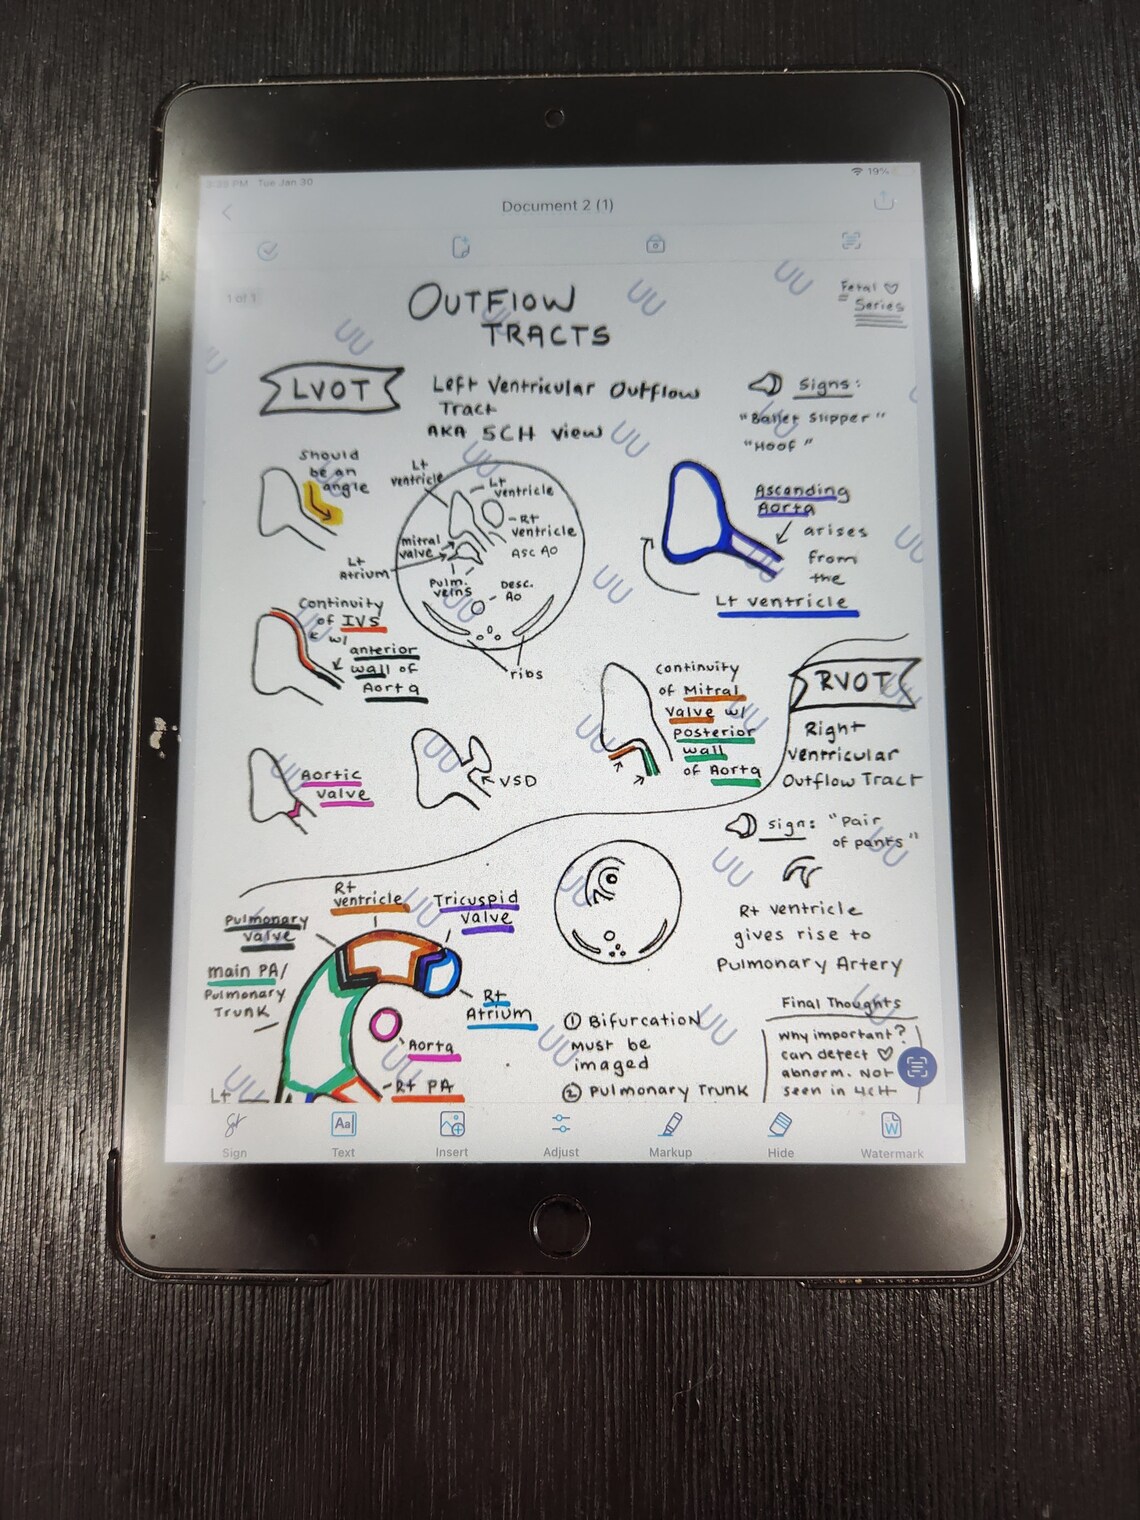 Tue Jan 30
19%
Document 2 (1)
1 of 1
OUTFLOW
TRACTS
Fetal
Series
LVOT
Left Ventricular Outflow
Tract
AKA 5CH view
Signs:
"Ballet Slipper"
"Hoof"
Should
be an
angle
Lt
ventricle
Lt
ventricle
Rt
ventricle
Asc Ao
mitral
valve
Lt
Atrium
Pulm.
veins
Desc.
Ao
ribs
Ascending
Aorta
arises
from
the
Lt ventricle
Continuity
of IVS
w/
anterior
wall of
Aorta
Continuity
of Mitral
Valve w/
Posterior
wall
of Aorta
Aortic
Valve
VSD
RVOT
Right
Ventricular
Outflow Tract
Sign: "Pair
of pants"
Rt ventricle
gives rise to
Pulmonary Artery
Rt
ventricle
Tricuspid
Valve
Pulmonary
Valve
main PA/
Pulmonary
Trunk
Rt
Atrium
Aorta
Rt PA
Lt
① Bifurcation
must be
imaged
② Pulmonary Trunk
Final Thoughts
Why important?
can detect
abnorm. not
seen in 4CH
Sign
Text
Insert
Adjust
Markup
Hide
Watermark
UU